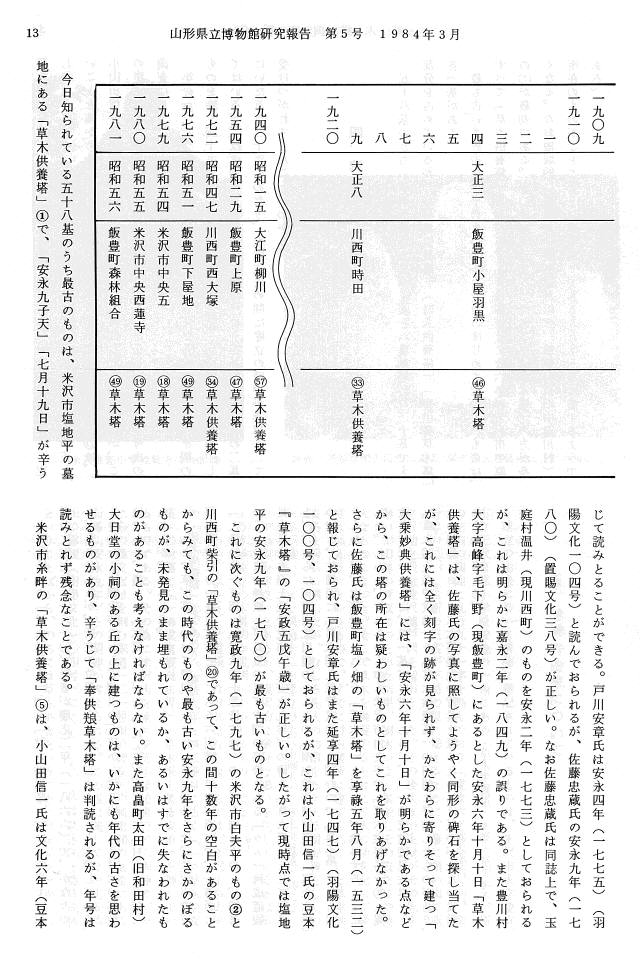 13
山形県立博物館研究報告 第5号 1984年3月
一九〇九
一九一〇
一
二
三
四 大正三 飯豊町小屋羽黒 ㊻草木塔
五
六
七
八
九 大正八 川西町時田 ㉝草木供養塔
一九二〇
一九四〇 昭和一五 大江町柳川 57草木供養塔
一九五四 昭和二九 飯豊町上原 ㊼草木塔
一九七二 昭和四七 川西町西大塚 ㉞草木供養塔
一九七六 昭和五一 飯豊町下屋地 ㊾草木塔
一九七九 昭和五四 米沢市中央五 ⑱草木塔
一九八〇 昭和五五 米沢市中央西蓮寺 ⑲草木塔
一九八一 昭和五六 飯豊町森林組合 ㊾草木塔
今日知られている五十八基のうち最古のものは、米沢市塩地平の墓
地にある「草木供養塔」①で、「安永九子天」「七月十九日」が辛う
じて読みとることができる。戸川安章氏は安永四年（一七七五）（羽
陽文化一〇四号）と読んでおられるが、佐藤忠蔵氏の安永九年（一七
八〇）（置賜文化三八号）が正しい。なお佐藤忠蔵氏は同誌上で、玉
庭村温井（現川西町）のものを安永二年（一七七三）としておられる
が、これは明らかに嘉永二年（一八四九）の誤りである。また豊川村
大字高峰字毛下野（現飯豊町）にあるとした安永六年十月十日「草木
供養塔」は、佐藤氏の写真に照してようやく同形の碑石を探し当てた
が、これには全く刻字の跡が見られず、かたわらに寄りそって建つ「
大乗妙典供養塔」には、「安永六年十月十日」が明らかである点など
から、この塔の所在は疑わしいものとしてこれを取りあげなかった。
さらに佐藤氏は飯豊町塩ノ畑の「草木塔」を享祿五年八月（一五三二）
と報じておられ、戸川安章氏はまた延享四年（一七四七）（羽陽文化
一〇〇号、一〇四号）としておられるが、これは小山田信一氏の豆本
『草木塔』の「安政五戊午歳」が正しい。したがって現時点では塩地
平の安永九年（一七八〇）が最も古いものとなる。
これに次ぐものは寛政九年（一七九七）の米沢市白夫平のもの②と
川西町柴引の「草木供養塔」⑳であって、この間十数年の空白があること
からみても、この時代のものや最も古い安永九年をさらにさかのぼる
ものが、未発見のまま埋もれているか、あるいはすでに失なわれたも
のがあることも考えなければならない。また高畠町太田（旧和田村）
大日堂の小祠のある丘の上に建つものは、いかにも年代の古さを思わ
せるものがあり、辛うじて「奉供粮草木塔」は判読されるが、年号は
読みとれず残念なことである。
米沢市糸畔の「草木供養塔」⑤は、小山田信一氏は文化六年（豆本